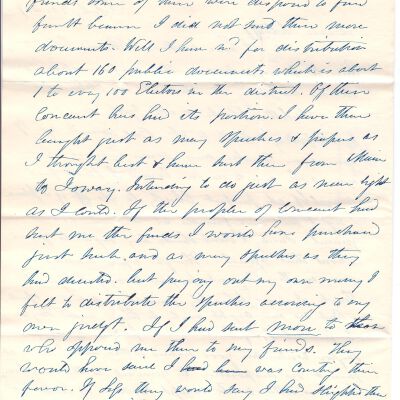 friends some of them were disposed to find
fault because I did not send them more
documents. Well I have recd for distribution
about 160 public documents which is about
1 to every 100 Electors in the district. Of them
Conneaut has had its portion. I have then
bought just as many Speeches & papers as
I thought best & have sent them from
to Intending to do just as near right
as I could. If the people of Conneaut had
sent me the funds I would have purchased
just such and as many Speeches as they
had directed. but paying out my own money I
felt to distribute the Speeches according to my
own judgt. If I had sent more to those
who opposed me than to my friends. They
would have said I was courting their
favor. If less they would say I had slighted them